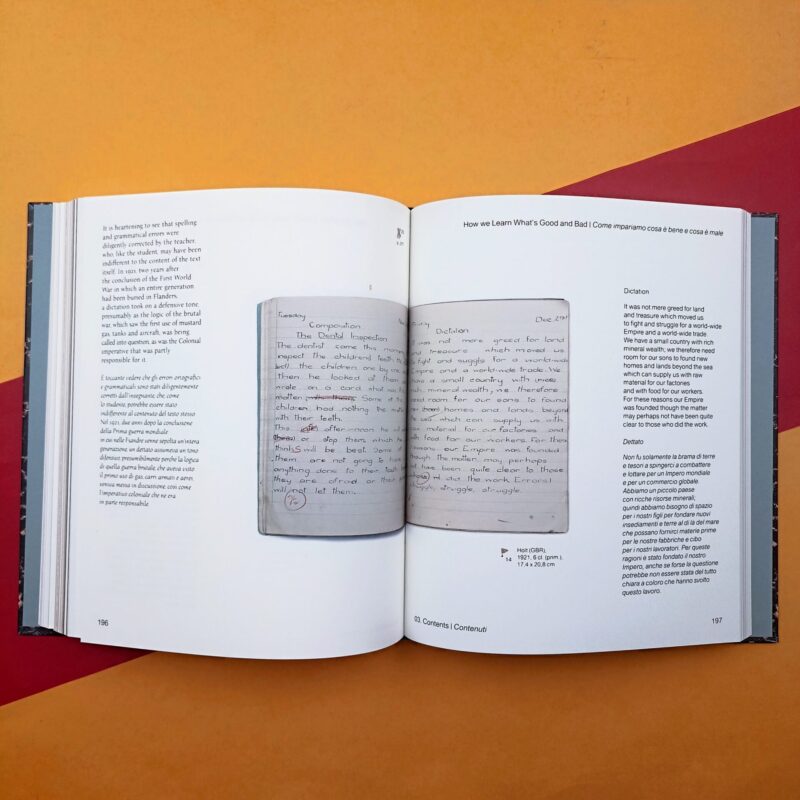 It is heartening to see that spelling
and grammatical errors were
diligently corrected by the teacher,
who, like the student, may have been
indifferent to the content of the text
itself. In 1921, two years after
the conclusion of the First World
War in which an entire generation
had been buried in Flanders,
a dictation took on a defensive tone,
presumably as the logic of the brutal
war, which saw the first use of mustard
gas, tanks and aircraft, was being
called into question, as was the Colonial
imperative that was partly
responsible for it.
È toccante vedere che gli errori ortografici
e grammaticali sono stati diligentemente
corretti dall'insegnante, che, come
lo studente, potrebbe essere stato
indifferente al contenuto del testo stesso
Nel 1921, due anni dopo la conclusione
della Prima guerra mondiale
in cui nelle Fiandre venne sepolta un'intera
generazione, un dettato assumeva un tono
difensivo presumibilmente perché la logica
di quella guerra brutale, che aveva visto
il primo uso di gas, carri armati e aerei,
veniva messa in discussione, così come
l'imperativo coloniale che ne era
in parte responsabile
196
Tuesday
Composition
The Dental Inspection
The dentist came this
inspect the childrens teeth
the children, one by one
Then he looked at them
wrote on a card what was the
matten Some of the
children had nothing the
with their teeth.
This after-noon he will
or stop them, which he
thinks will be best. Some of
them are not going to have
anything done to their teeth
they are afraid or their
will not let them.
How we Learn What's Good and Bad | Come impariamo cosa è bene e cosa è male
Dec
Dictation
was not mere greed for land
and treasure which moved us
fight and suggle for a world-wide
Empire and a world-wide trade. We
have a small country with
mineral wealth, we therefore
need room for our sons to found
homes and lands beyond
the sea which can supply us with
raw material for our factories and
with food for our workers. For these
reasons our Empire was founded
though the matter, may perhaps
not have been quite clear to those
who did the work. Errors 1
struggle, struggle, struggle.
14
Holt (GBR),
1921, 6 cl. (prim.),
17.4 x 20,8 cm
Dictation
It was not mere greed for land
and treasure which moved us
to fight and struggle for a world-wide
Empire and a world-wide trade.
We have a small country with rich
mineral wealth; we therefore need
room for our sons to found new
homes and lands beyond the sea
which can supply us with raw
material for our factories
and with food for our workers.
For these reasons our Empire
was founded though the matter
may perhaps not have been quite
clear to those who did the work.
Dettato
Non fu solamente la brama di terre
e tesori a spingerci a combattere
e lottare per un impero mondiale
e per un commercio globale.
Abbiamo un piccolo paese
con ricche risorse minerali;
quindi abbiamo bisogno di spazio
per i nostri figli per fondare nuovi
insediamenti e terre al di là del mare
che possano fornirci materie prime
per le nostre fabbriche e cibo
per i nostri lavoratori. Per queste
ragioni è stato fondato il nostro
Impero, anche se forse la questione
potrebbe non essere stata del tutto
chiara a coloro che hanno svolto
questo lavoro.
03. Contents | Contenuti
197